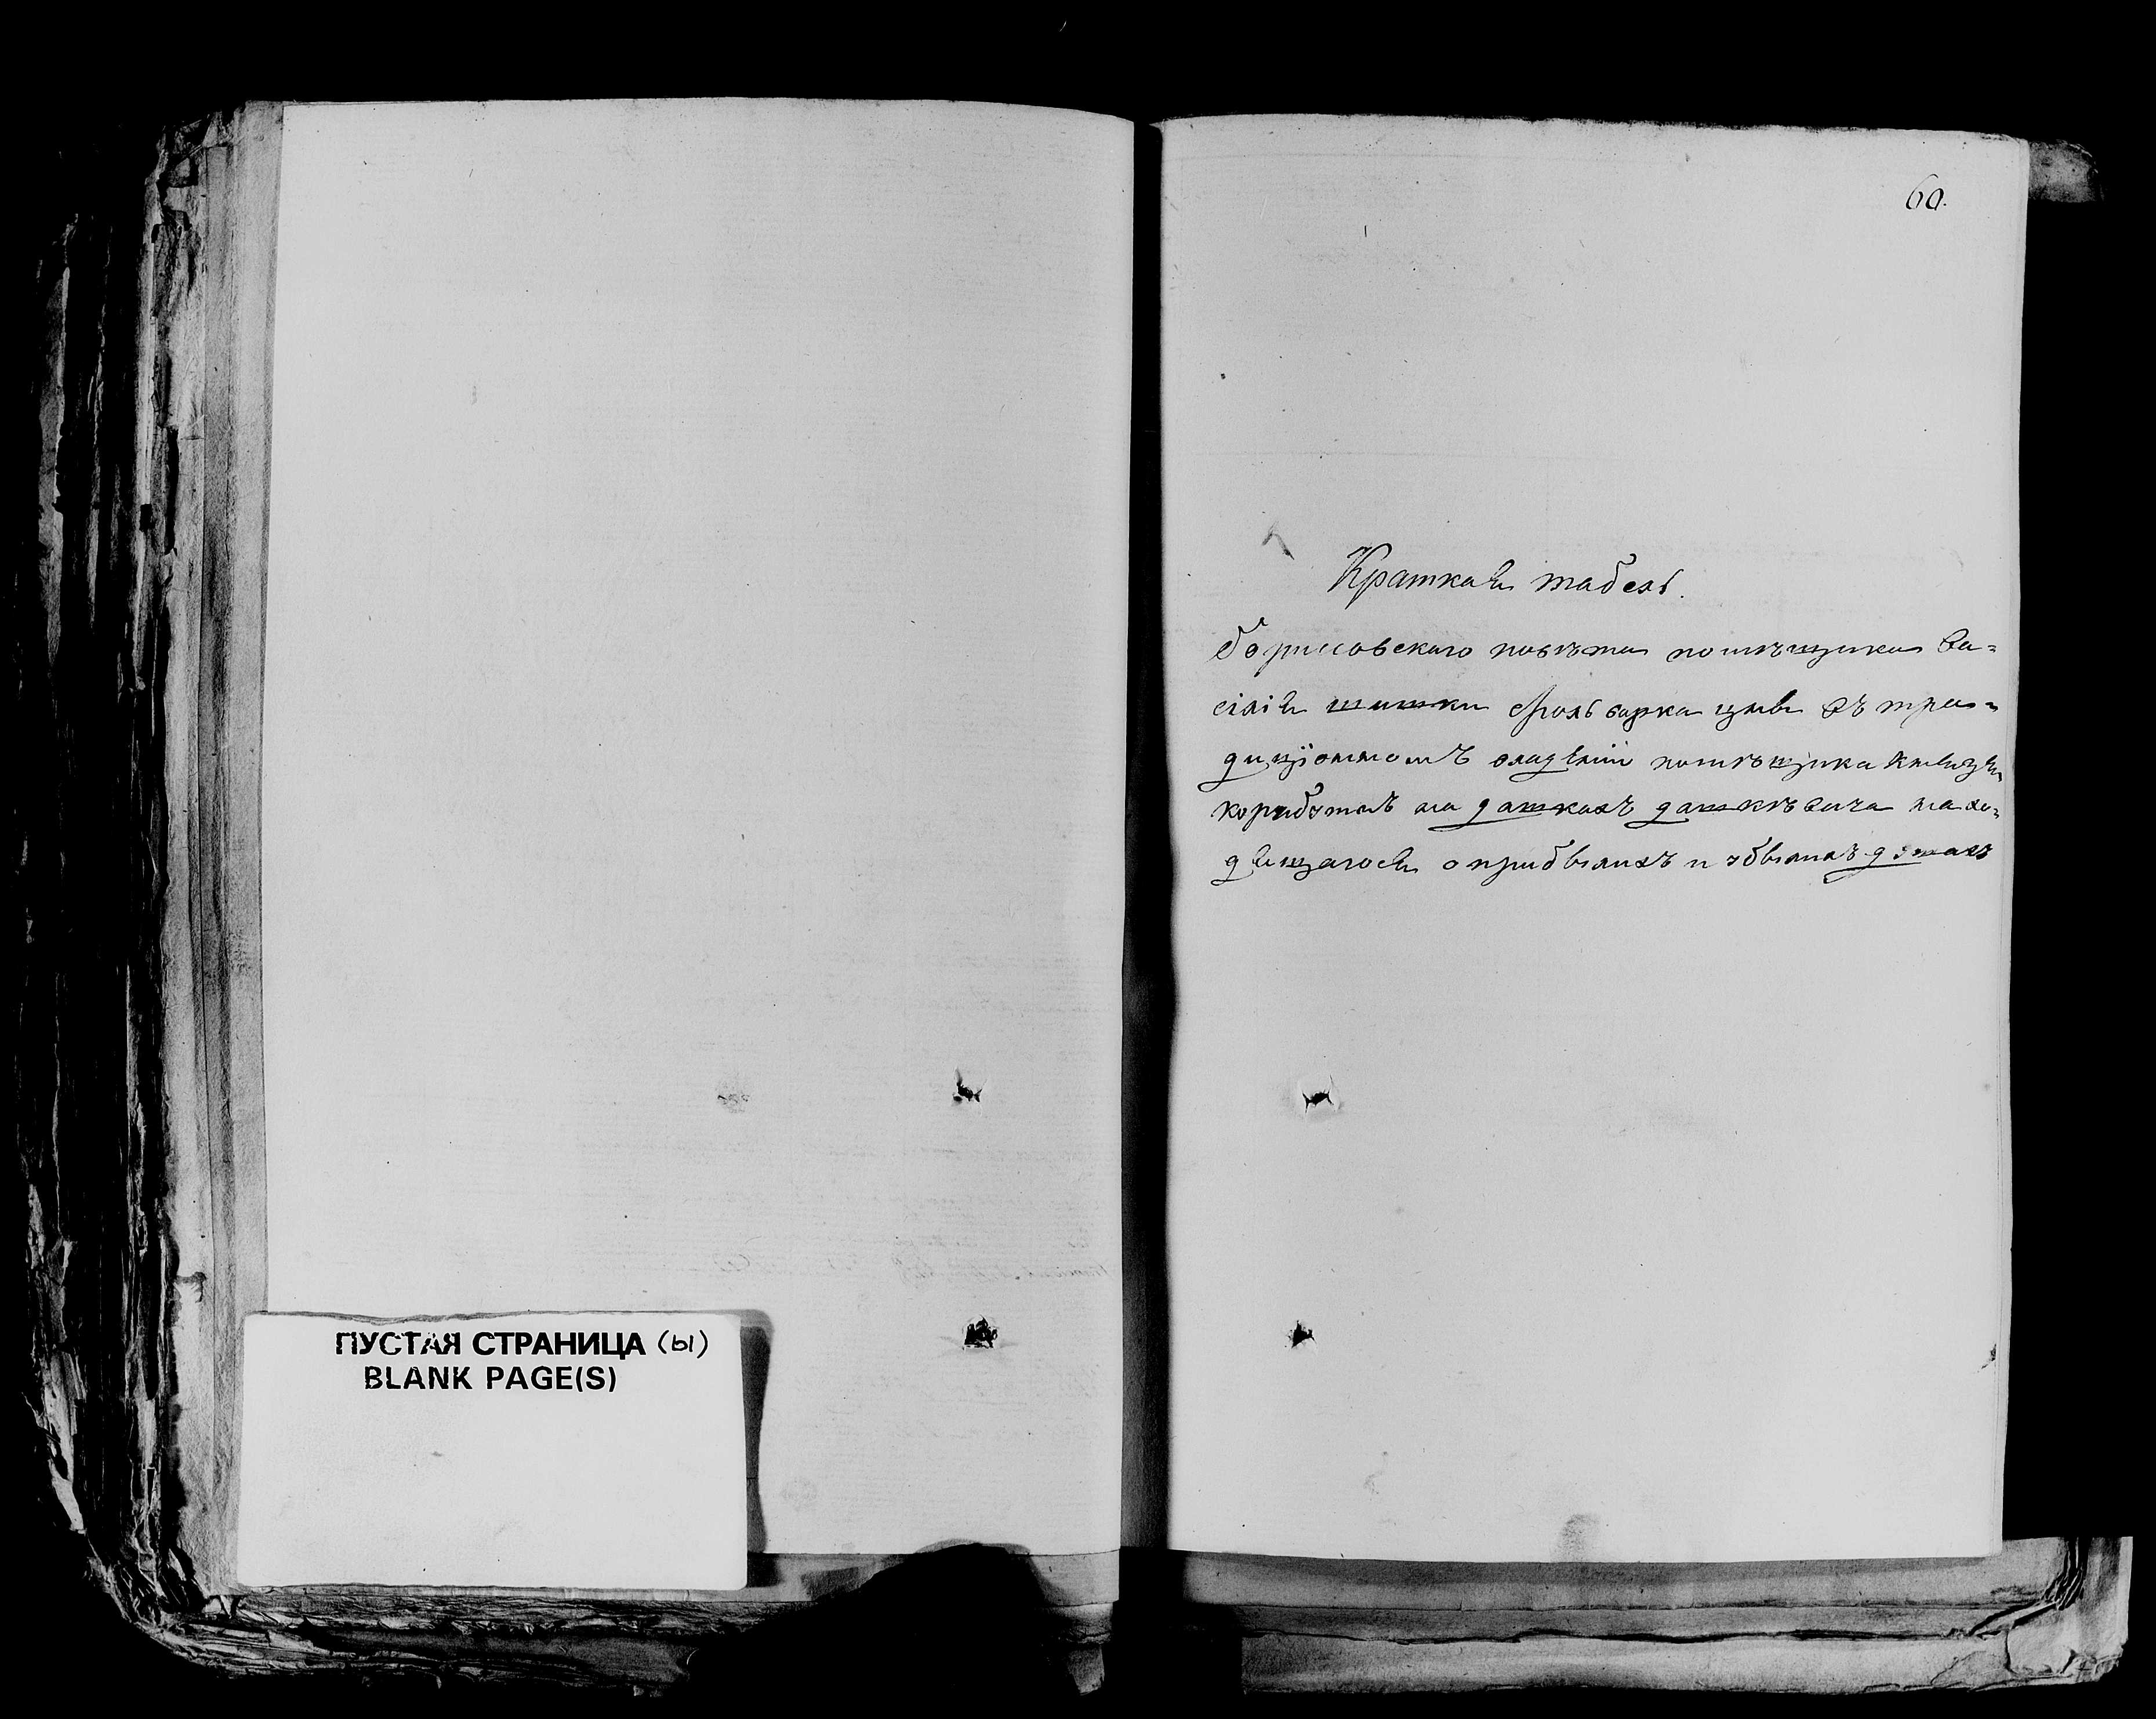 ПУСТАЯ СТРАНИЦА (ы)
BLANK PAGE(S)
60.
Краткая табель.
борисовскаго повѣта помѣщика ва=
силія шишки фольварка цны въ тра=
диціонномъ владѣніи помѣщика князя
корибута на дашкахъ дашкѣвича нахо=
дящагося о прибылыхъ и убылыхъ дѣшахъ